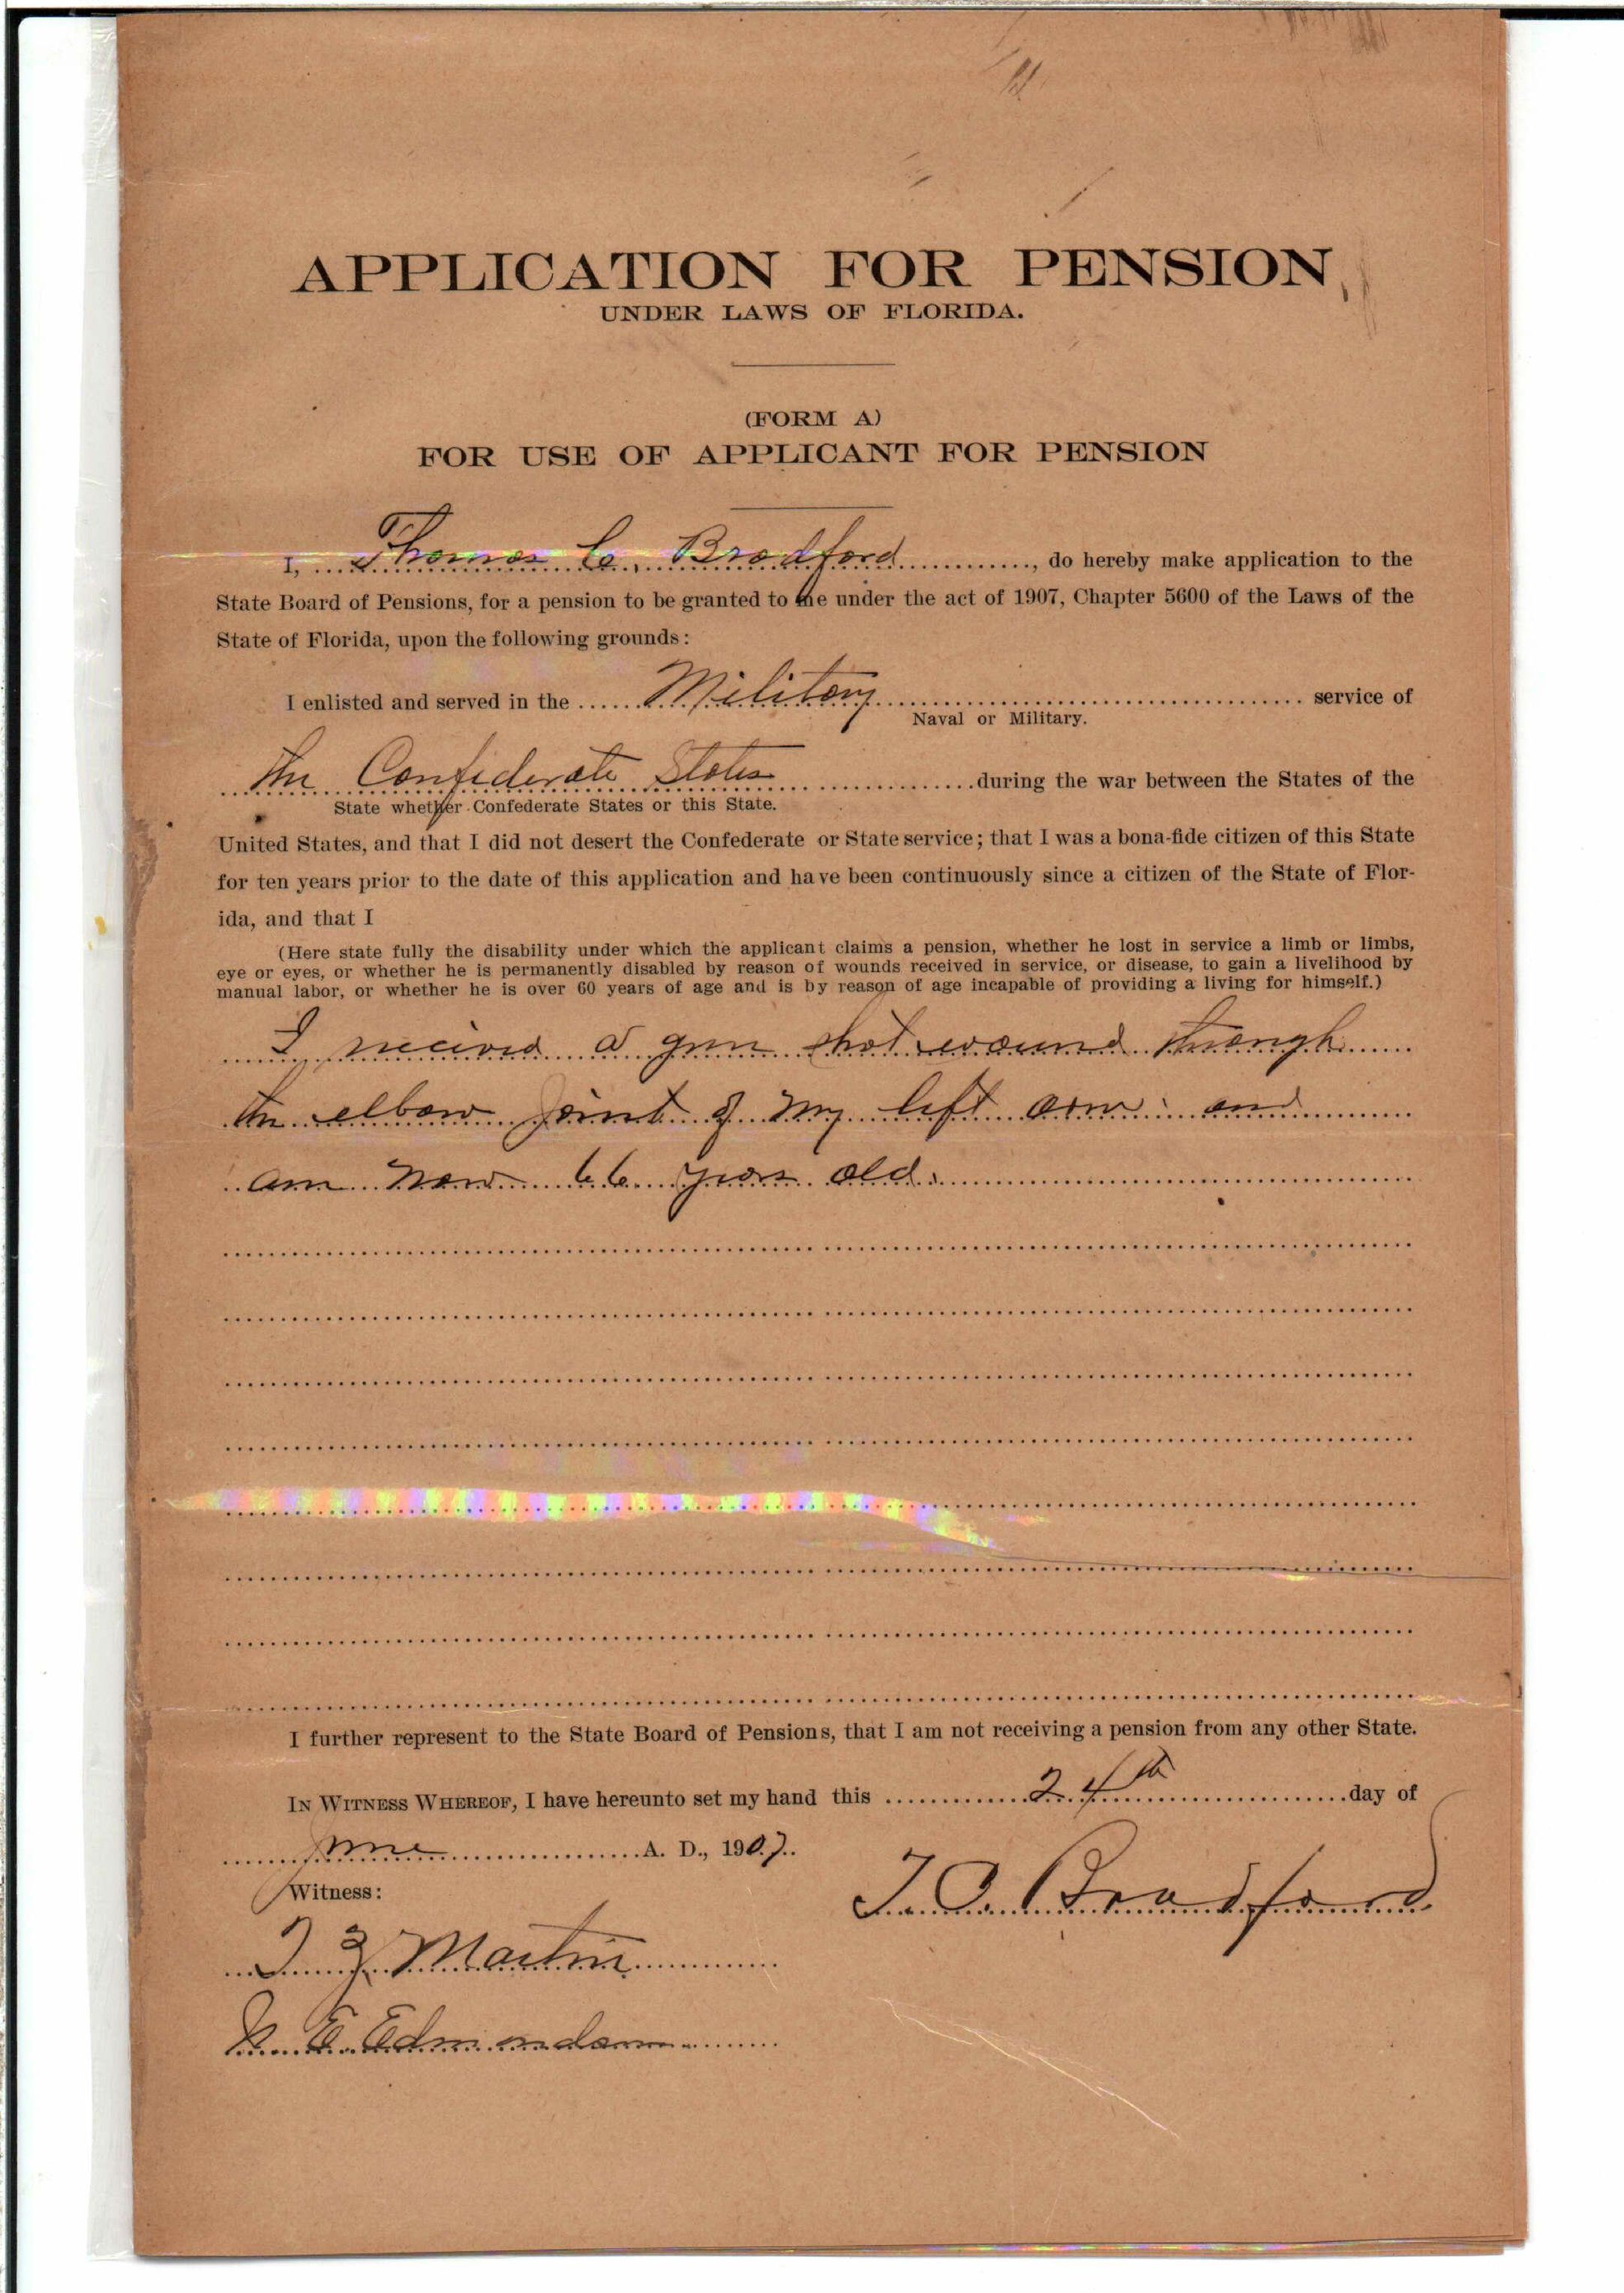 APPLICATION FOR PENSION
UNDER LAWS OF FLORIDA.
(FORM A)
FOR USE OF APPLICANT FOR PENSION
I, Thomas C. Bradford, do hereby make application to the
State Board of Pensions, for a pension to be granted to me under the act of 1907, Chapter 5600 of the Laws of the
State of Florida, upon the following grounds:
I enlisted and served in the Military service of
Naval or Military.
the Confederate States during the war between the States of the
State whether Confederate States or this State.
United States, and that I did not desert the Confederate or State service; that I was a bona-fide citizen of this State
for ten years prior to the date of this application and have been continuously since a citizen of the State of Flor-
ida, and that I
(Here state fully the disability under which the applicant claims a pension, whether he lost in service a limb or limbs,
eye or eyes, or whether he is permanently disabled by reason of wounds received in service, or disease, to gain a livelihood by
manual labor, or whether he is over 60 years of age and is by reason of age incapable of providing a living for himself.)
I received a gun shot wound through
the elbow joint of my left arm and
am now 66 years old.
I further represent to the State Board of Pensions, that I am not receiving a pension from any other State.
IN WITNESS WHEREOF, I have hereunto set my hand this 24th day of
June A. D., 1907.
Witness:
T. C. Bradford
Martin
E. Edmondson